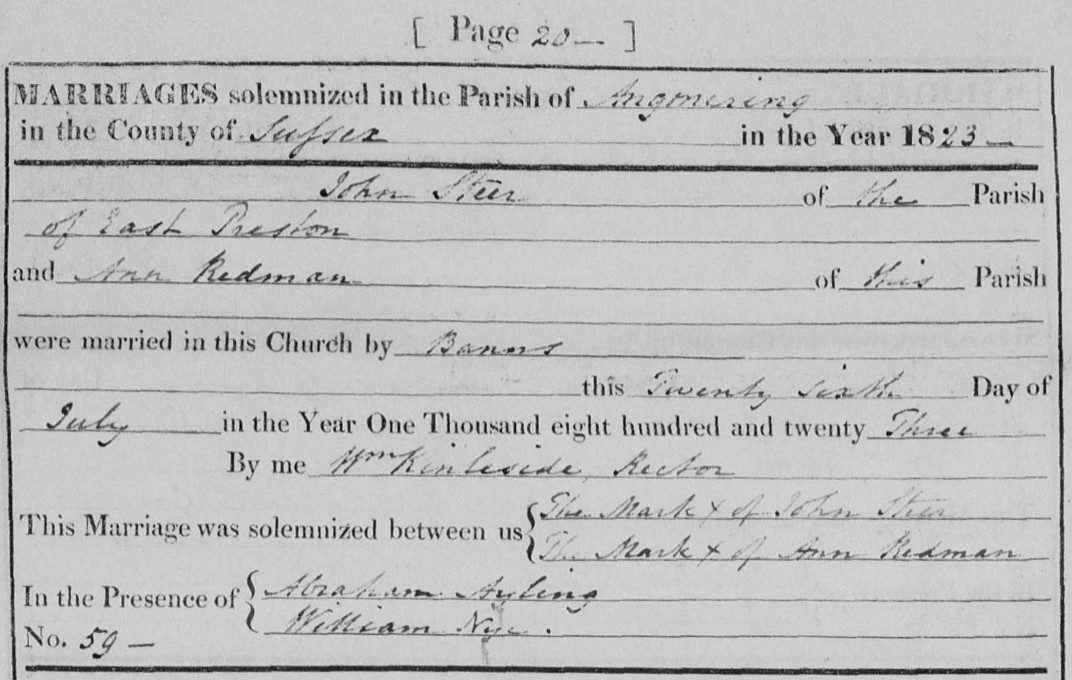 [ Page 20— ]
MARRIAGES solemnized in the Parish of Angmering
in the County of Sussex in the Year 1823—
John Steer of the Parish
of East Preston
and Ann Redman of this Parish
were married in this Church by Banns
this Twenty Sixth Day of
July in the Year One Thousand eight hundred and twenty Three
By me Wm Kinleside, Rector
This Marriage was solemnized between us { The Mark X of John Steer
The Mark X of Ann Redman
In the Presence of { Abraham Ayling
William Nye.
No. 59—